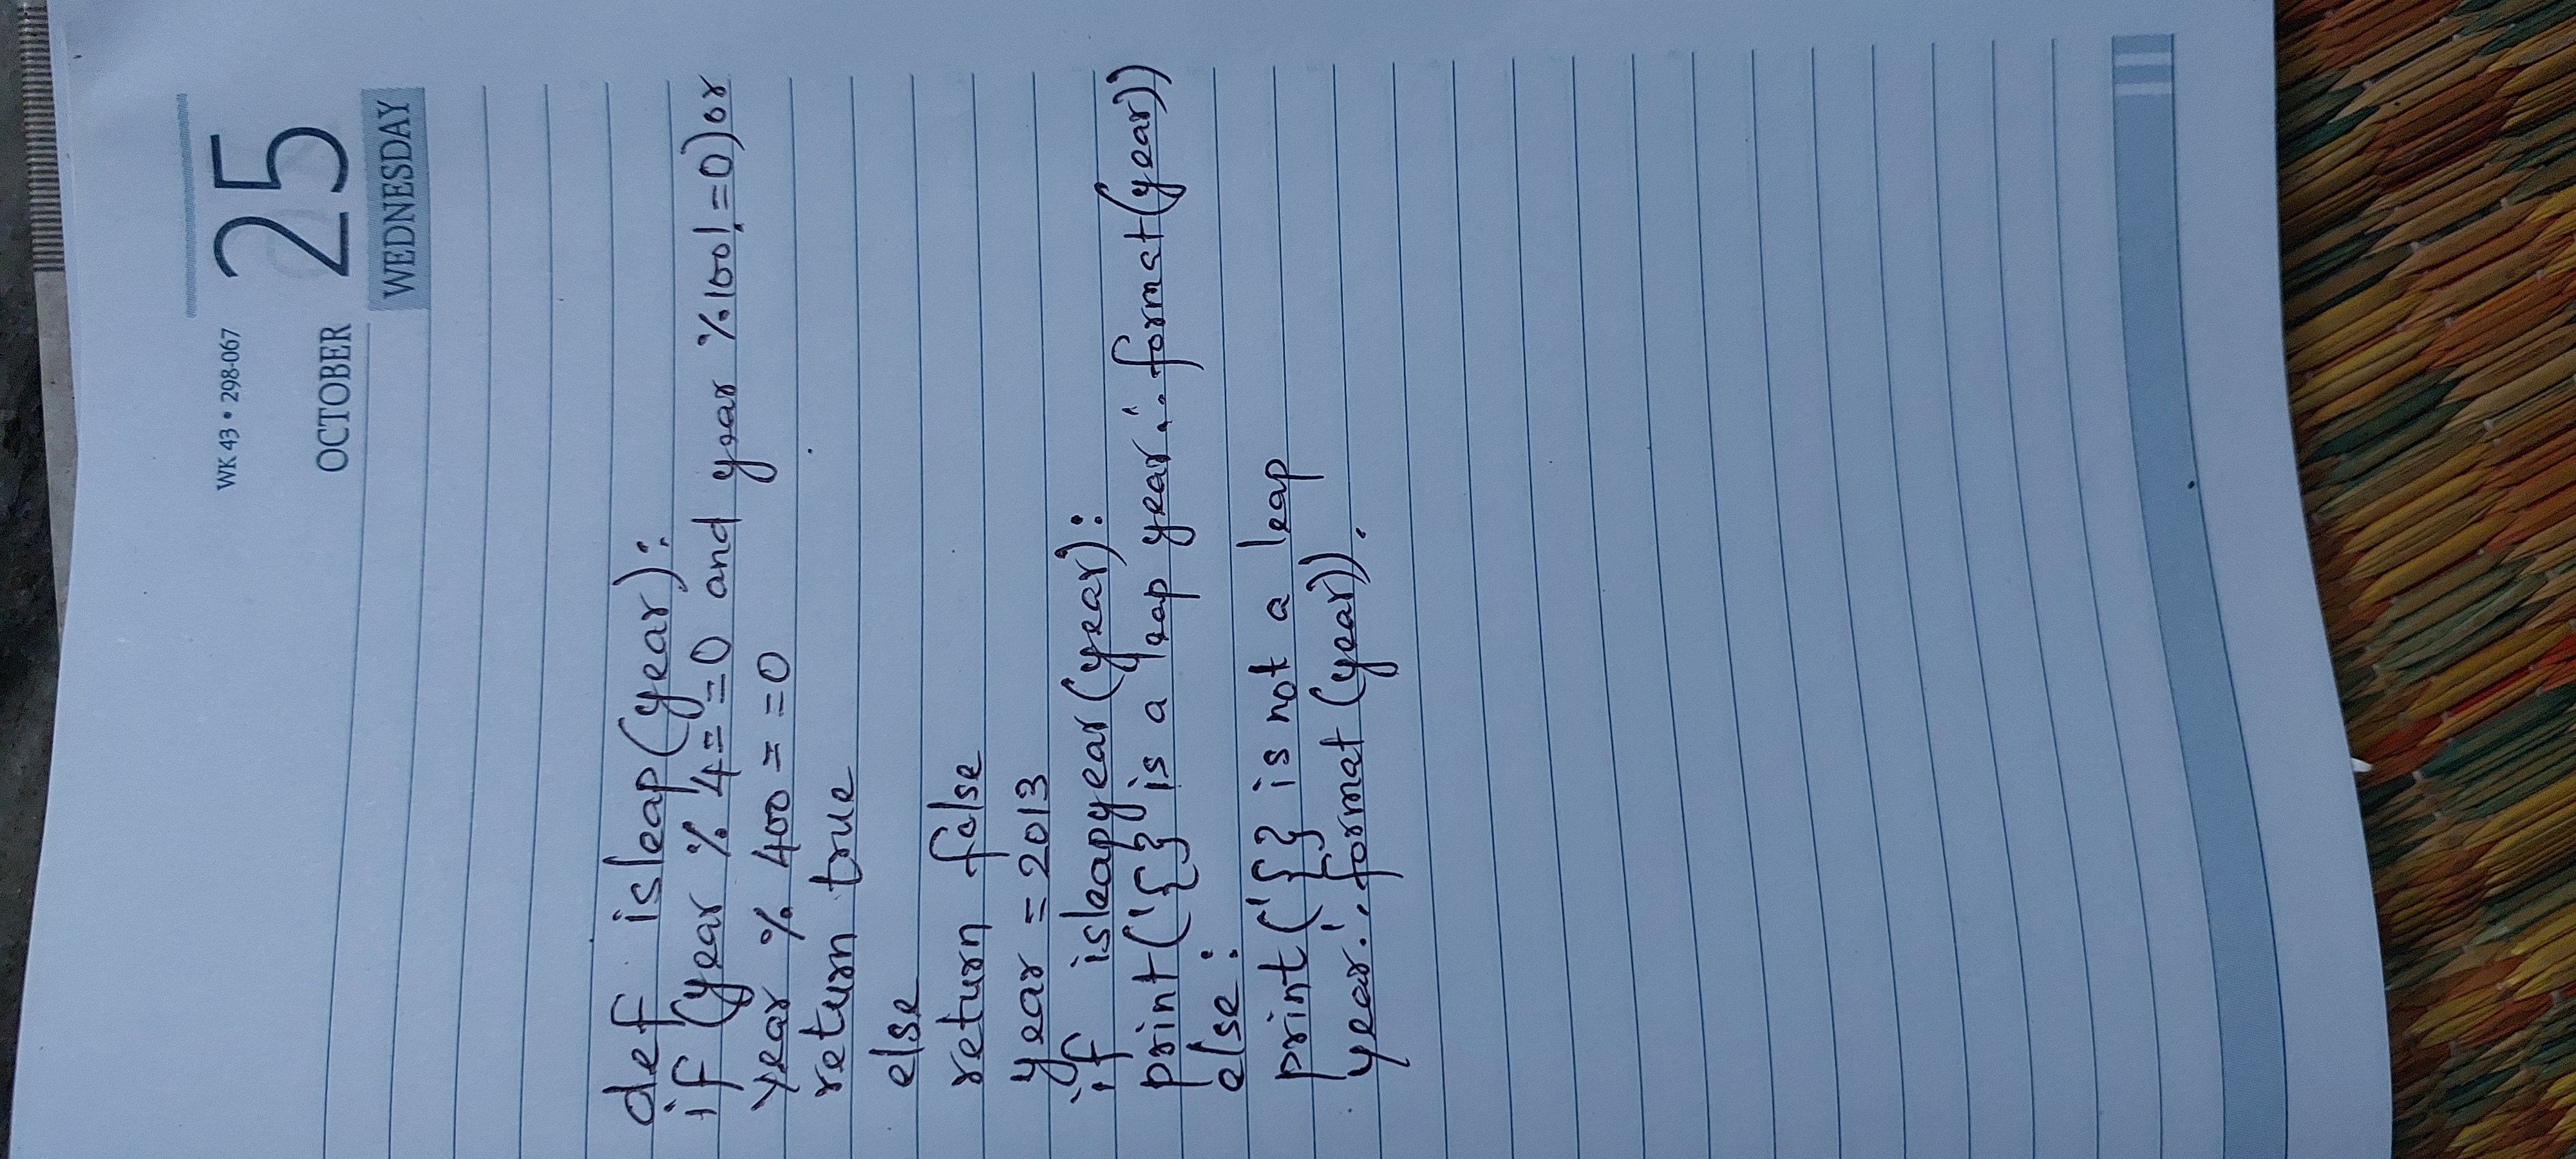 WK 43 • 298-067
25
OCTOBER
WEDNESDAY
def isleap(year):
if (year % 4= =0 and year %100!=0)or
year % 400 = =0
return true
else
return false
year = 2013
if isleapyear(year):
print('{} is a leap year.'.format(year))
else:
print('{} is not a leap
year.'.format(year)).